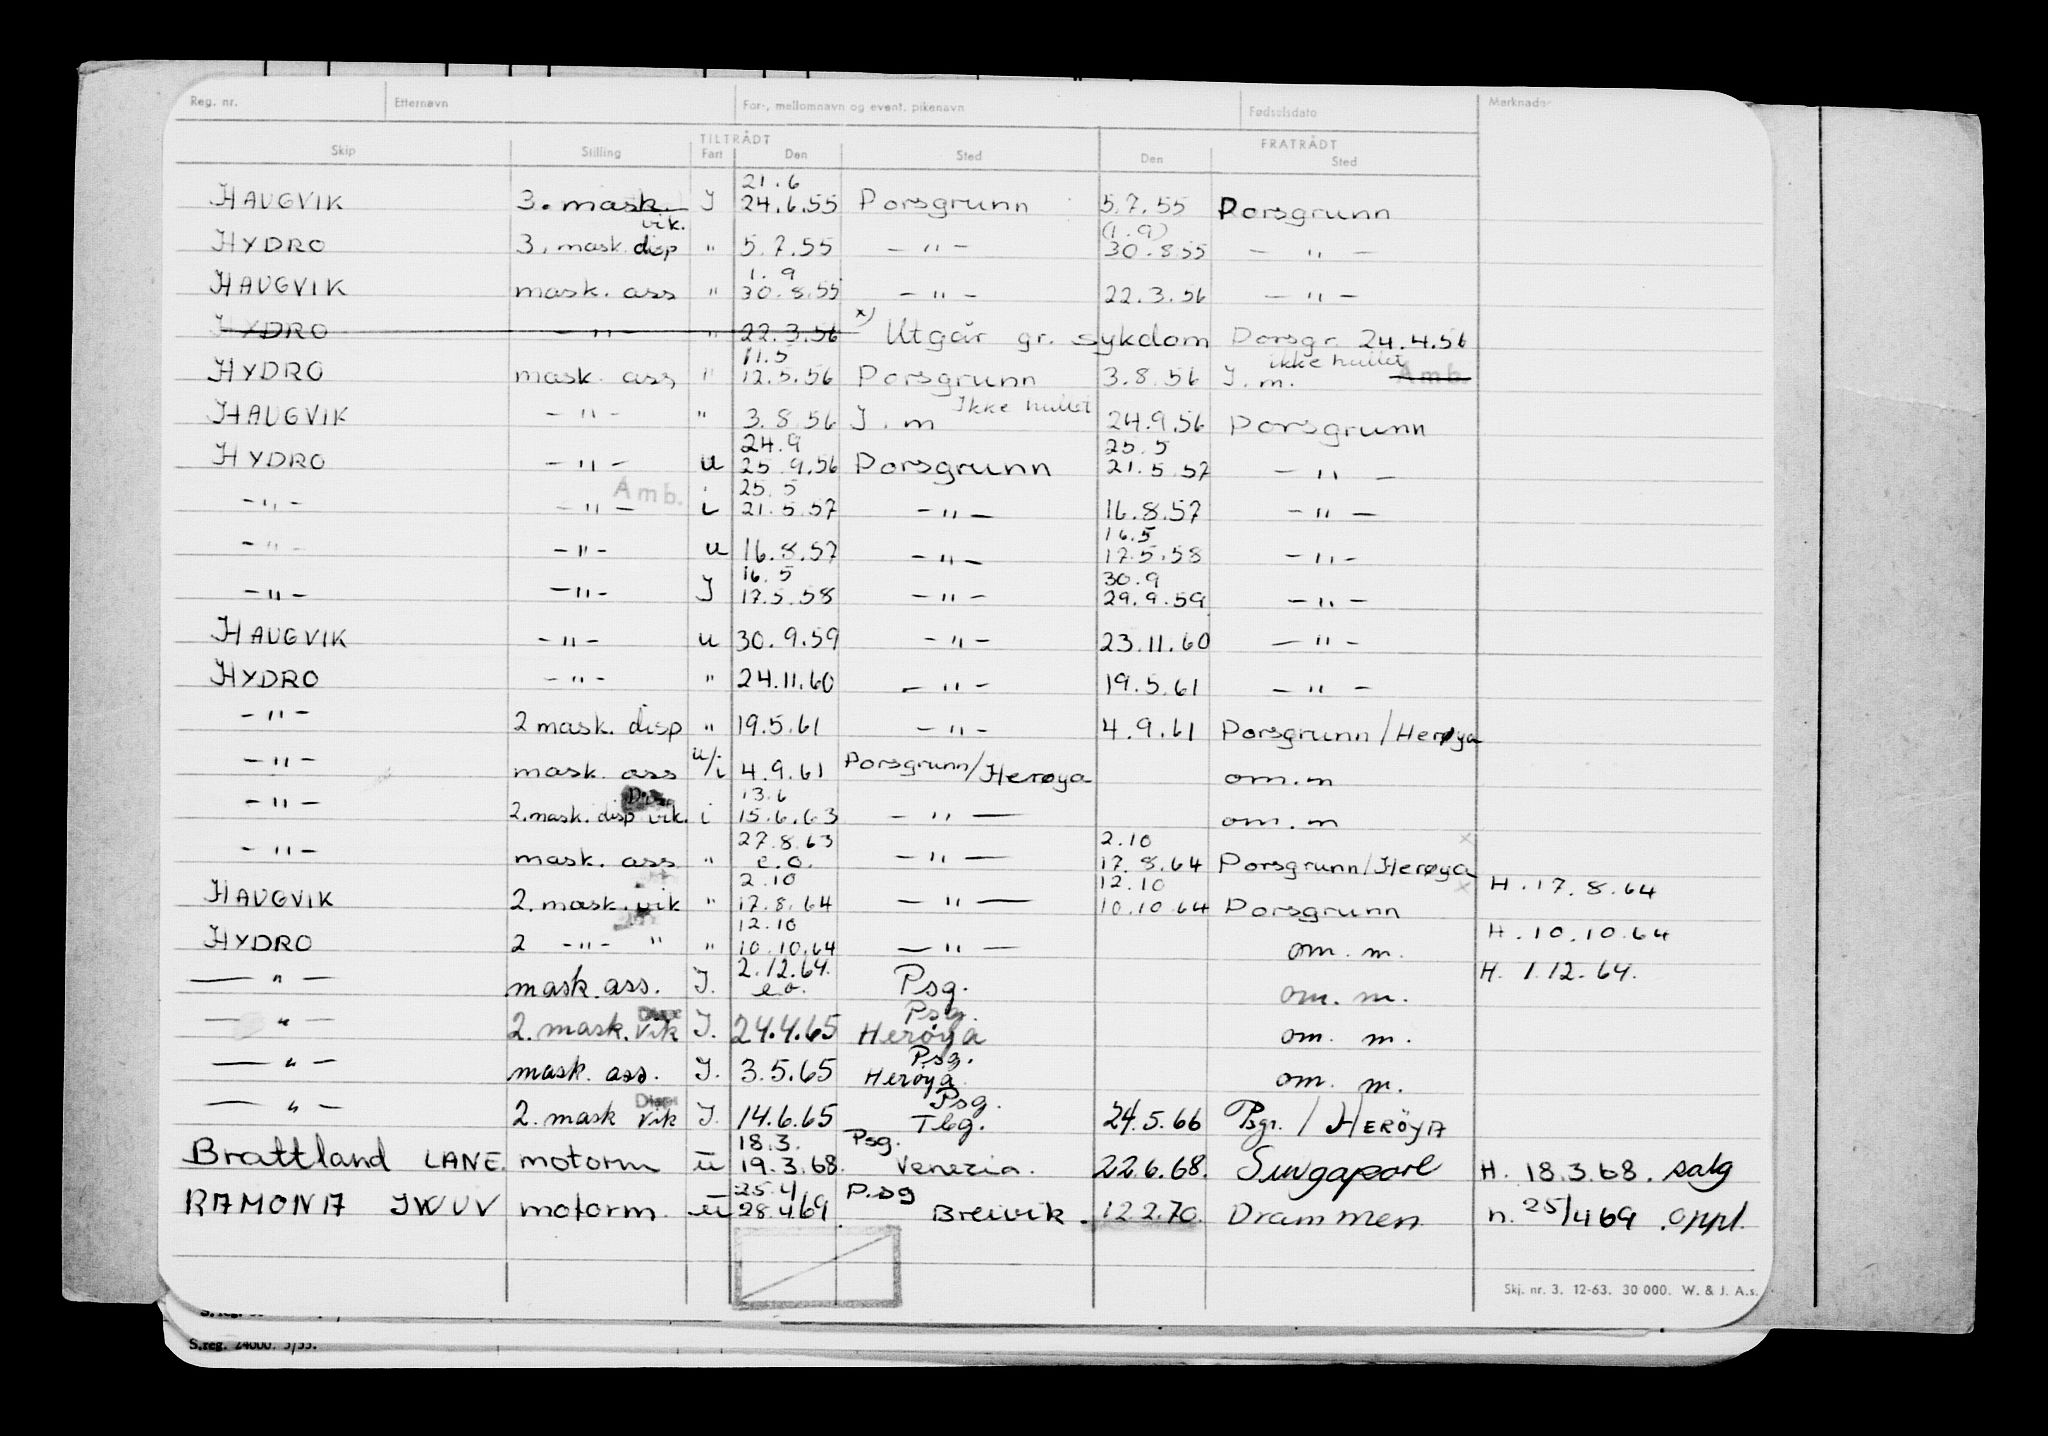 Reg. nr. Etternavn For-, mellomnavn og event. pikenavn Fødselsdato Merknader
TILTRÅDT FRATRÅDT
Skip Stilling Fart Den Sted Den Sted
21.6
HAUGVIK 3. mask. J 24.6.55 Porsgrunn 5.7.55 Porsgrunn
vik. (1.9)
HYDRO 3. mask. disp " 5.7.55 - " - 30.8.55 - " -
1.9
HAUGVIK mask. ass " 30.8.55 - " - 22.3.56 - " -
HYDRO - " - " 22.3.56 x) Utgår gr. sykdom Porsgr. 24.4.56
11.5 ikke hullet
HYDRO mask. ass " 12.5.56 Porsgrunn 3.8.56 J. m. Amb.
Ikke hullet
HAUGVIK - " - " 3.8.56 J. m 24.9.56 Porsgrunn
24.9 25.5
HYDRO - " - u 25.9.56 Porsgrunn 21.5.57 - " -
Amb. 25.5
- " - - " - i 21.5.57 - " - 16.8.57 - " -
16.5
- " - - " - u 16.8.57 - " - 17.5.58 - " -
16.5 30.9
- " - - " - J 17.5.58 - " - 29.9.59 - " -
HAUGVIK - " - u 30.9.59 - " - 23.11.60 - " -
HYDRO - " - " 24.11.60 - " - 19.5.61 - " -
- " - 2 mask. disp " 19.5.61 - " - 4.9.61 Porsgrunn/Herøya
- " - mask. ass u/i 4.9.61 Porsgrunn/Herøya om.m
13.6
- " - 2.mask. disp vik. i 15.6.63 - " - om.m
27.8.63 2.10 x
- " - mask. ass " e.o. - " - 17.8.64 Porsgrunn/Herøya
2.10 12.10 x H. 17.8.64
HAUGVIK 2. mask. vik " 17.8.64 - " - 10.10.64 Porsgrunn
12.10 H. 10.10.64
HYDRO 2 - " - " " 10.10.64 - " - om. m.
2.12.64. H. 1.12.64.
- " - mask. ass. J. e.o. Psg. om. m.
Disp Psg.
- " - 2. mask. vik J. 24.4.65 Herøya om. m.
Psg.
- " - mask. ass. J. 3.5.65 Herøya om. m.
Disp Psg.
- " - 2. mask vik J. 14.6.65 Tbg. 24.5.66 Psgr. / HERÖYA
18.3. Psg.
Brattland LANE motorm u 19.3.68. Venezia. 22.6.68. Singapore H. 18.3.68. salg
25.4 P.sg
RAMONA JWUV motorm. u 28.4.69. Breivik. 12.2.70. Drammen n. 25/4 69 .oppl.
Skj. nr. 3. 12-63. 30 000. W. & J. A.s.
S.reg. 24000. 5/55.